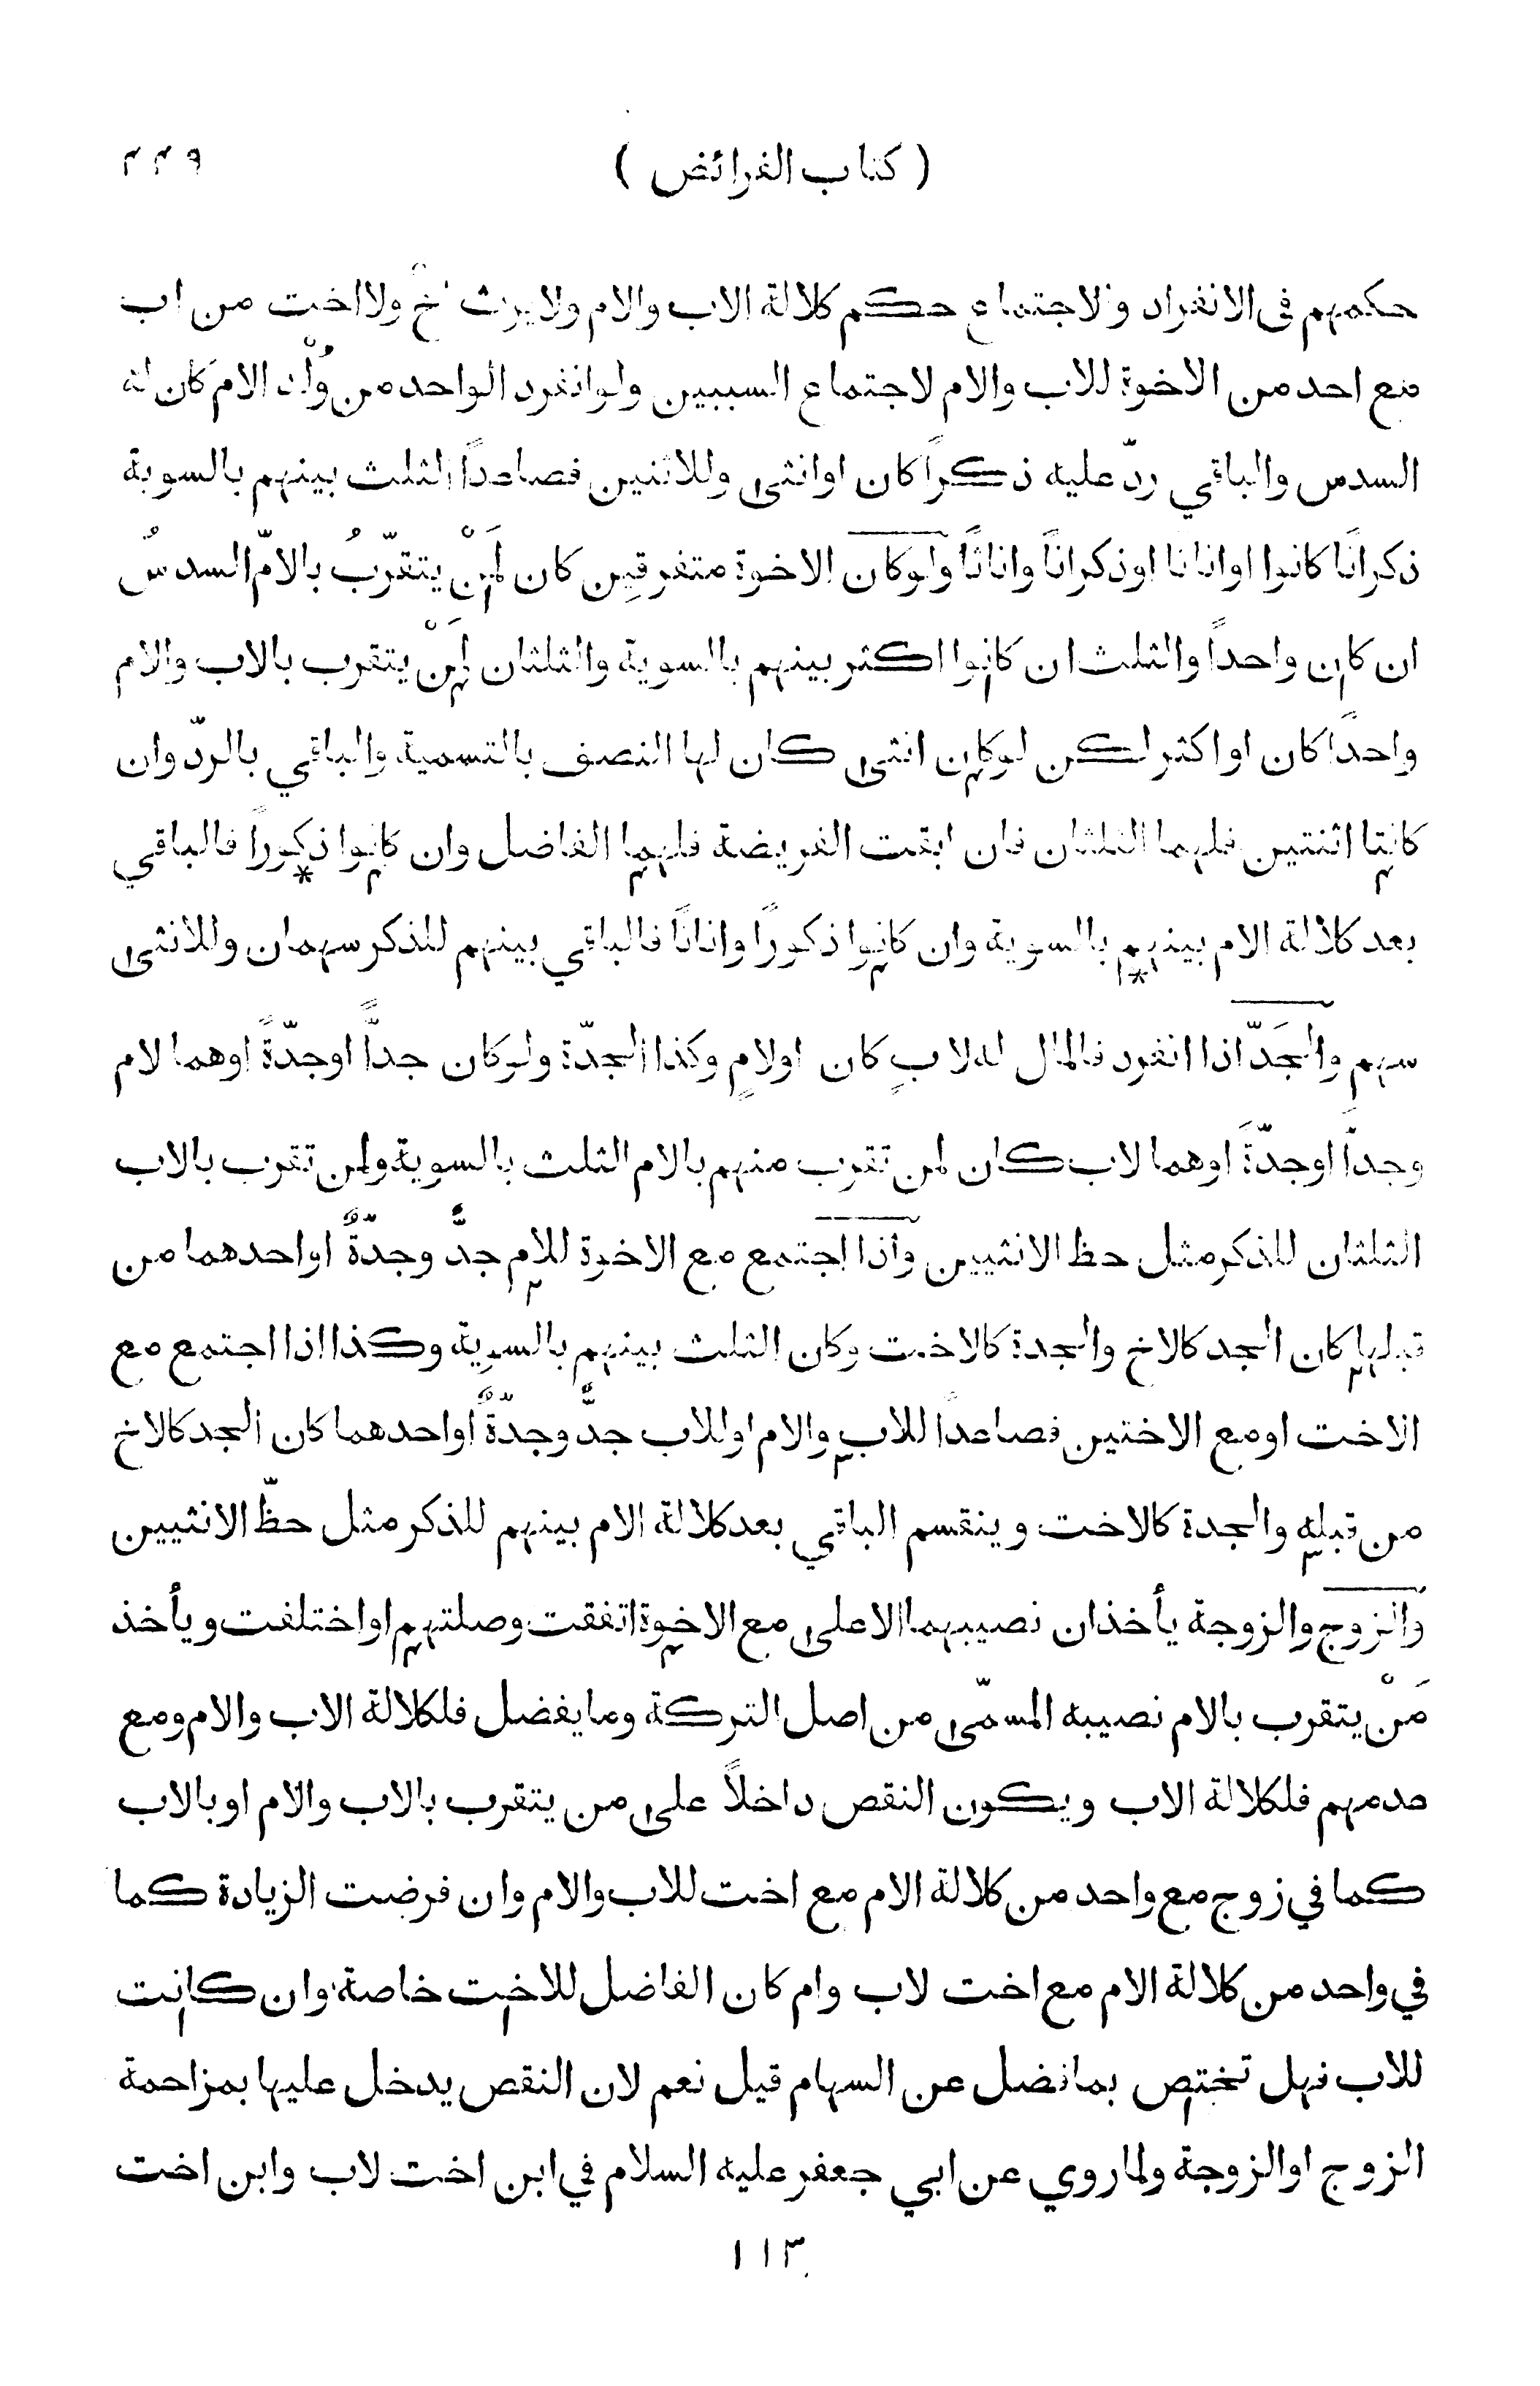 ( كتاب الفرائض ) ٤٤٩
حكمهم فى الانفراد والاجتماع حكم كلالة الاب والام ولا يرث اخ ولا اخت من اب
مع احد من الاخوة للاب والام لاجتماع السببين ولو انفرد الواحد من وُلْد الام كان له
السدس والباقي ردّ عليه ذكراً كان او انثى وللاثنين فصاعداً الثلث بينهم بالسوية
ذكرانًا كانوا او اناثا او ذكراناً واناثاً ولو كان الاخوة متفرقين كان لمَنْ يتقرّبُ بالامّ السدسُ
ان كان واحداً والثلث ان كانوا اكثر بينهم بالسوية والثلثان لمَنْ يتقرب بالاب والام
واحداً كان او اكثر لكن لو كان انثى كان لها النصف بالتسمية والباقي بالردّ وان
كانتا اثنتين فلهما الثلثان فان ابقت الفريضة فلهما الفاضل وان كانوا ذكوراً فالباقي
بعد كلالة الام بينهم بالسوية وان كانوا ذكورًا واناثاً فالباقي بينهم للذكر سهمان وللانثى
سهم والجَدّ اذا انفرد فالمال له لابٍ كان او لامٍ وكذا الجدّة ولو كان جداً او جدّةً او هما لام
وجداً او جدّةً او هما لاب كان لمن تقرب منهم بالام الثلث بالسوية ولمن تقرب بالاب
الثلثان للذكر مثل حظ الانثيين واذا اجتمع مع الاخوة للام جدٌّ وجدّةٌ او احدهما من
قبلها كان الجد كالاخ والجدة كالاخت وكان الثلث بينهم بالسوية وكذا اذا اجتمع مع
الاخت او مع الاختين فصاعداً للاب والام او للاب جدٌّ وجدّةٌ او احدهما كان الجد كالاخ
من قبله والجدة كالاخت وينقسم الباقي بعد كلالة الام بينهم للذكر مثل حظّ الانثيين
والزوج والزوجة يأخذان نصيبهما الاعلى مع الاخوة اتفقت وصلتهم او اختلفت ويأخذ
مَنْ يتقرب بالام نصيبه المسمّى من اصل التركة وما يفضل فلكلالة الاب والام ومع
عدمهم فلكلالة الاب ويكون النقص داخلاً على من يتقرب بالاب والام او بالاب
كما في زوج مع واحد من كلالة الام مع اخت للاب والام وان فرضت الزيادة كما
في واحد من كلالة الام مع اخت لاب وام كان الفاضل للاخت خاصة وان كانت
للاب فهل تختص بما فضل عن السهام قيل نعم لان النقص يدخل عليها بمزاحمة
الزوج او الزوجة ولما روي عن ابي جعفر عليه السلام في ابن اخت لاب وابن اخت
١١٣